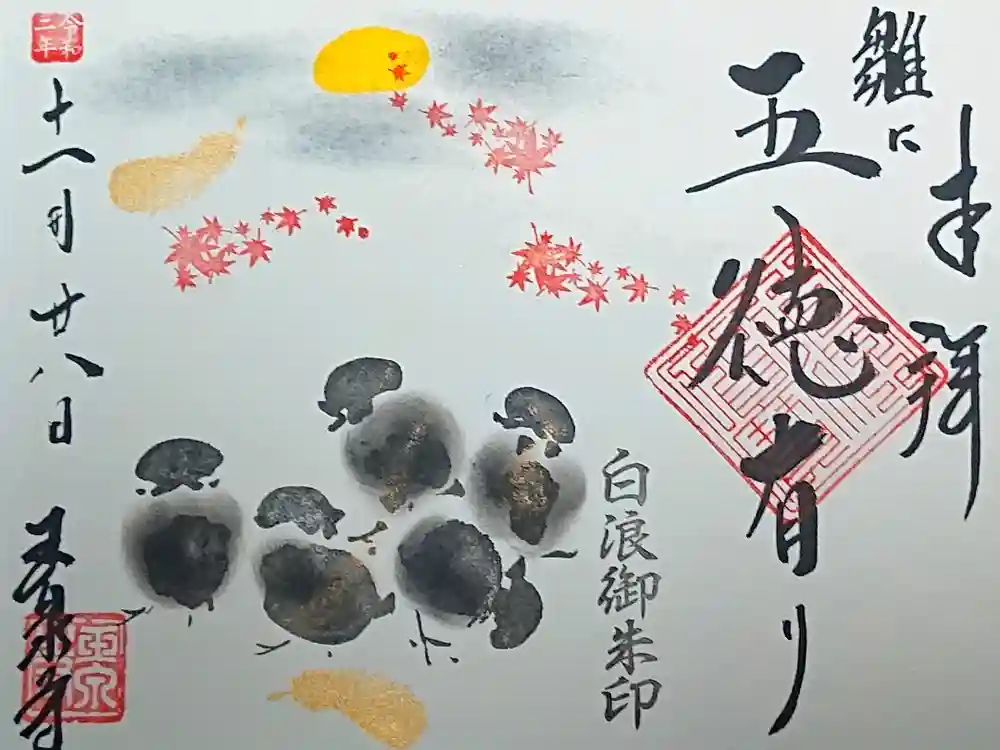 奉拝
雞に
五徳有り
白浪御朱印
令和
三年
十一月廿八日
玉泉寺